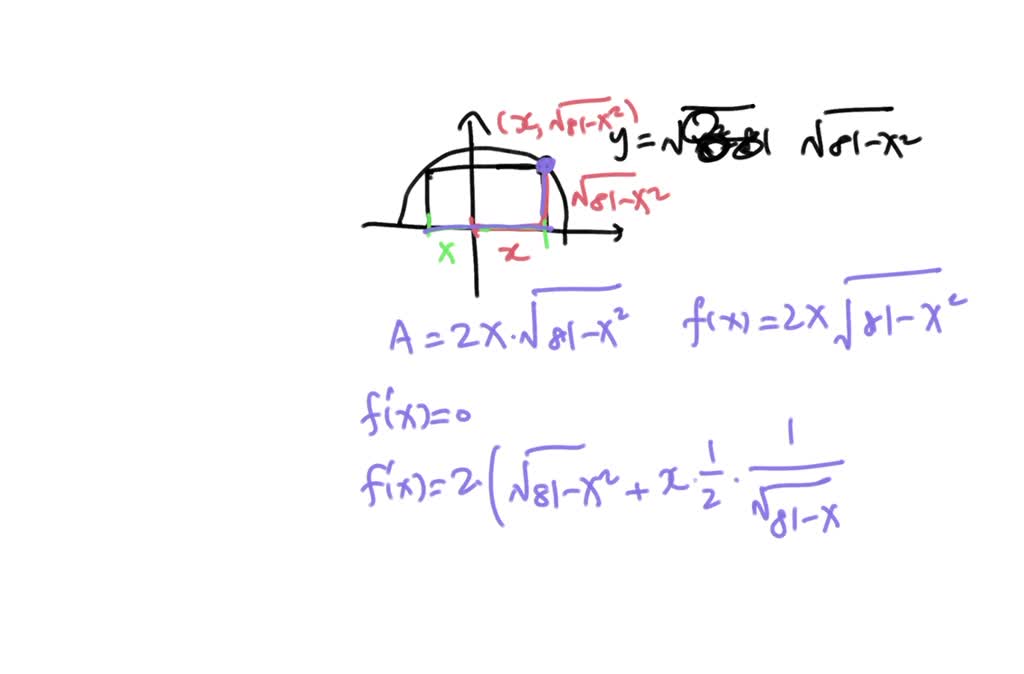 (x, √81-x²)
y = √ 81 √81-x²
√81-x²
x x
A = 2x·√81-x² f(x) = 2x√81-x²
f'(x) = 0
f'(x) = 2·(√81-x² + x·1/2·1/√81-x